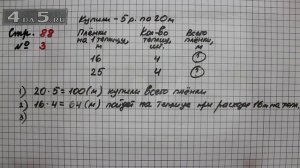 4da5.ru
Купили - 5 р. по 20 м
Стр. 88
№ 3
Плёнки на 1 теплицу, м
Кол-во теплиц, шт.
Всего плёнки, м
16 4 ?
25 4 ?
1) 20·5=100(м) купили всего плёнки
2) 16·4=64(м) пойдёт на теплицы при расходе 16м на
3)